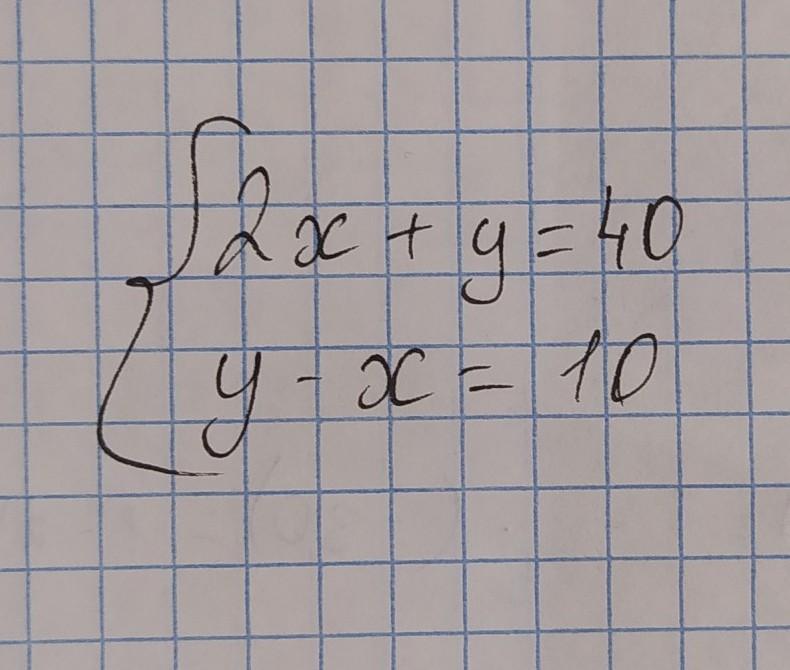 2x + y = 40
y - x = 10